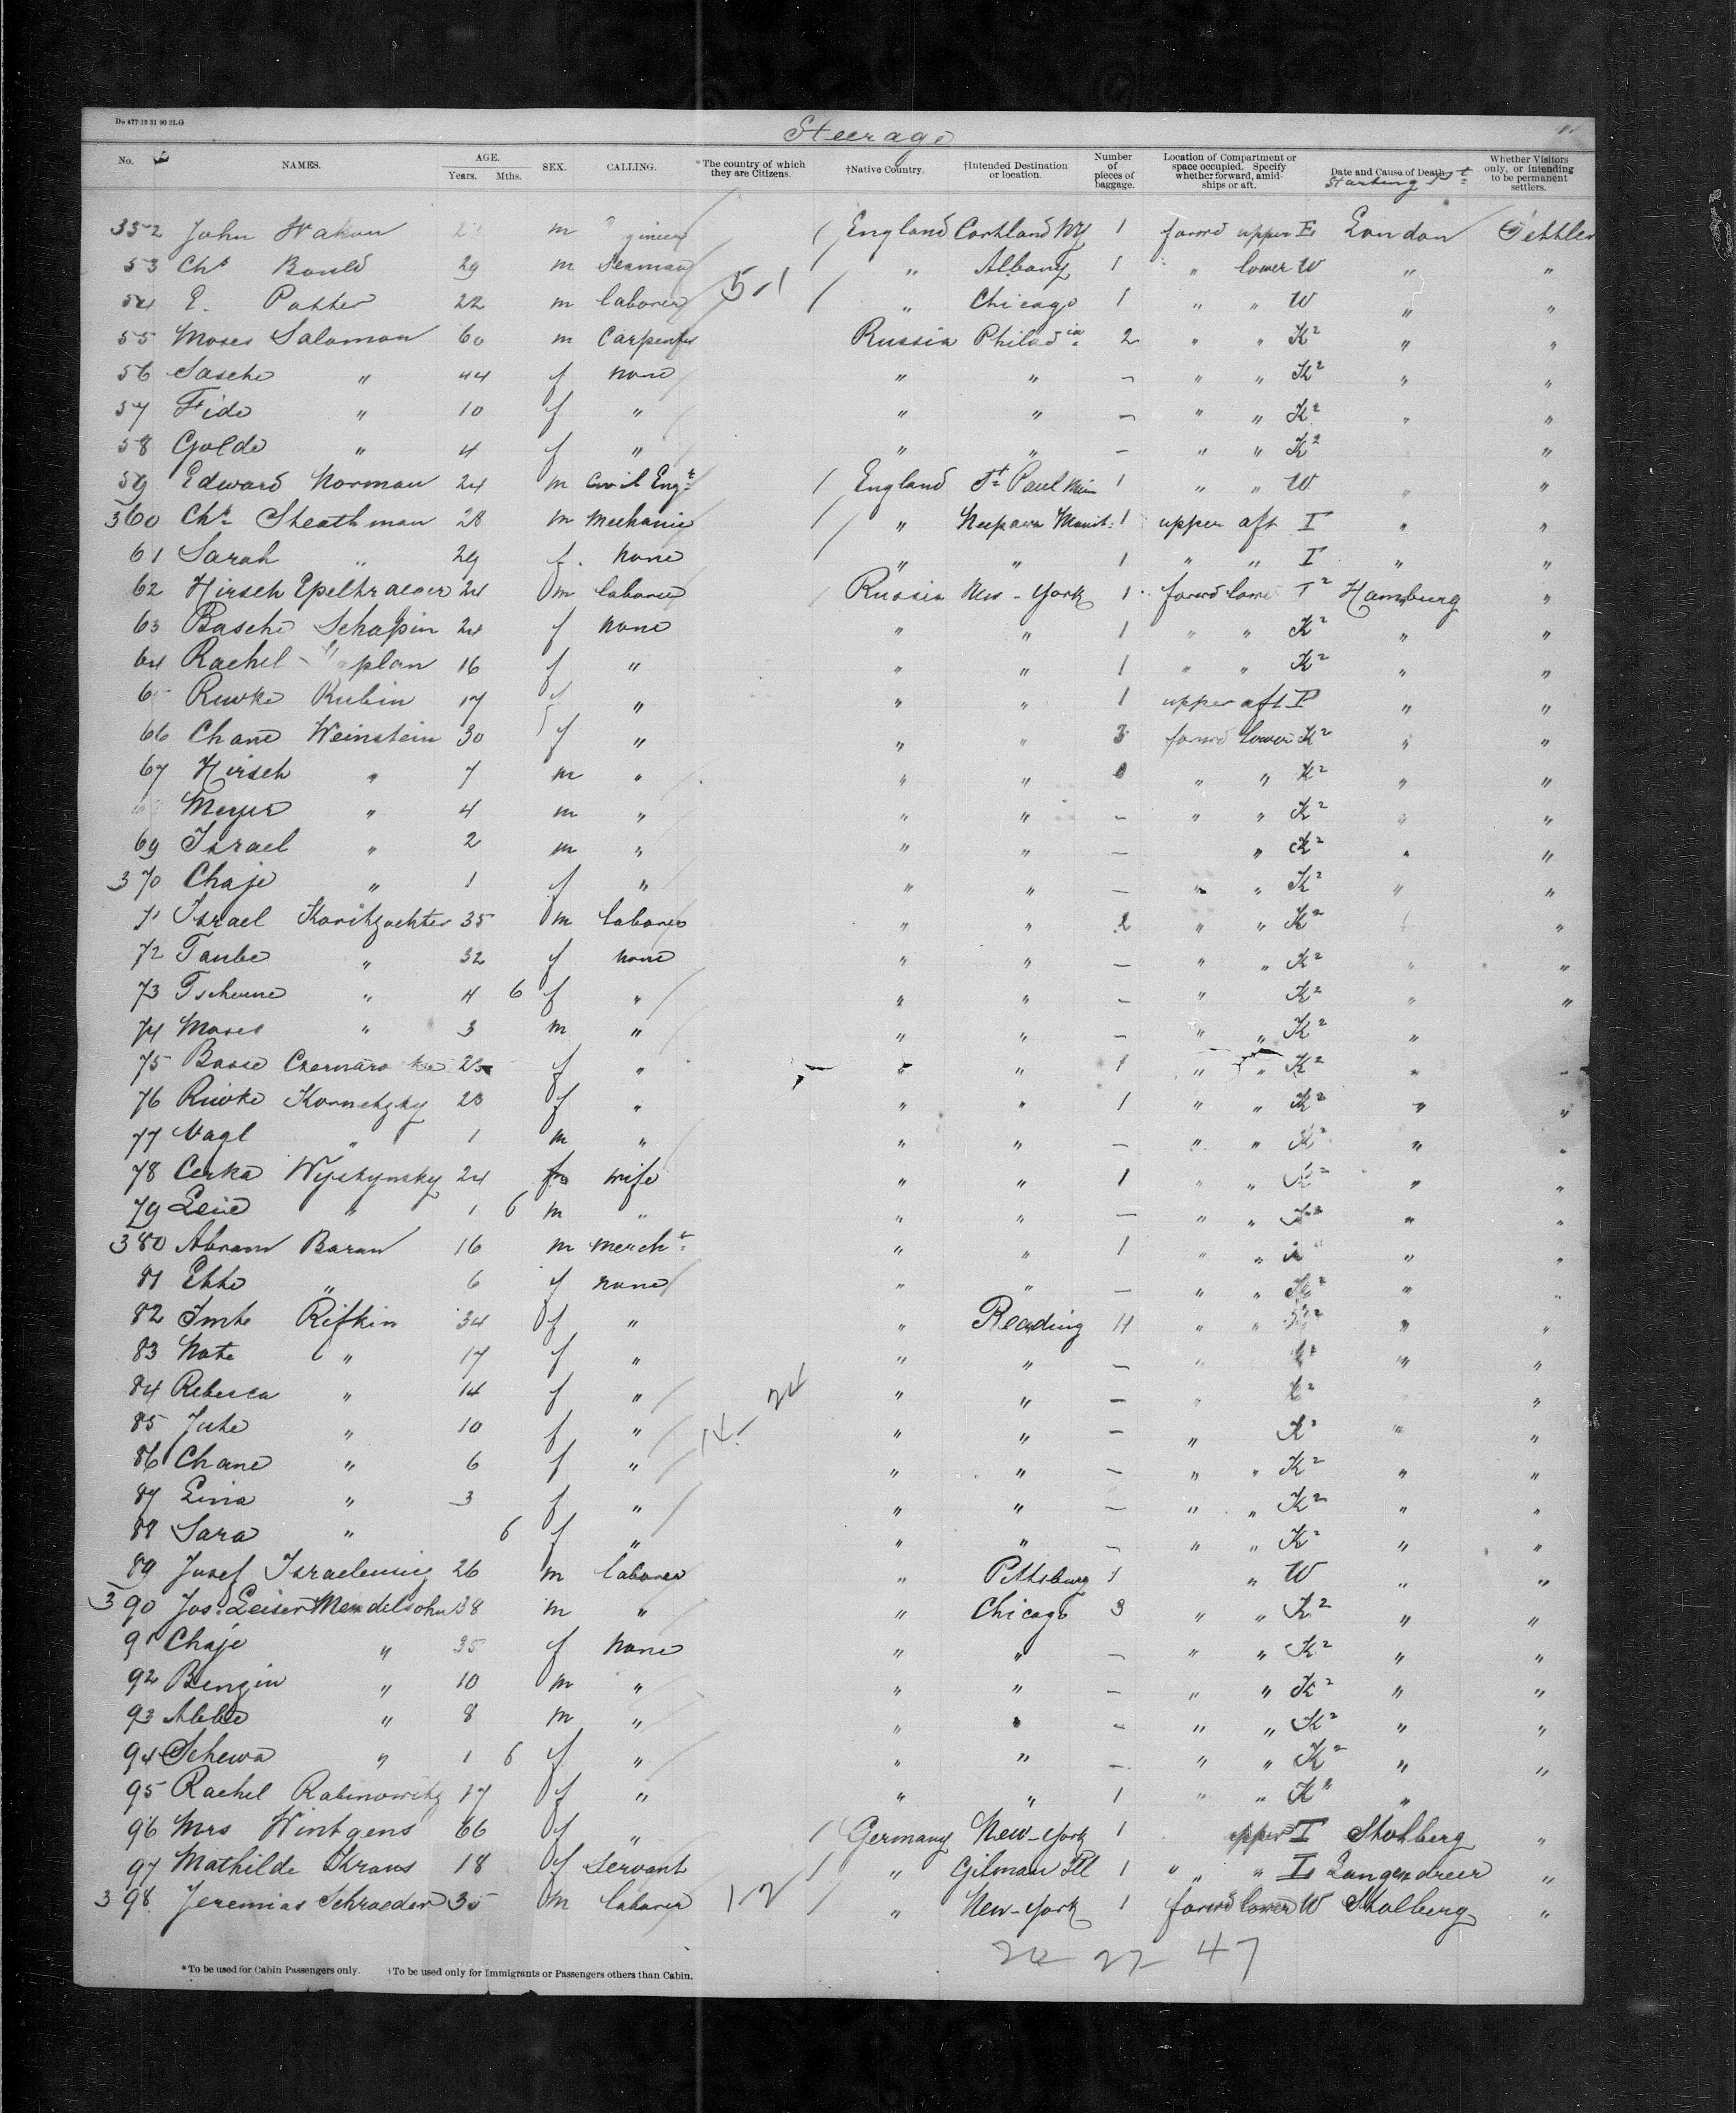 Do 477 12 31 90 2LG
Steerage
No. NAMES. AGE. Years. Mths. SEX. CALLING. *The country of which they are Citizens. †Native Country. †Intended Destination or location. Number of pieces of baggage. Location of Compartment or space occupied. Specify whether forward, amidships or aft. Date and Cause of Death. Whether Visitors only, or intending to be permanent settlers.
Starting Pt
352 John m England Cortland NY 1 forwd upper E London Settler
53 Chs Bould 29 m Seaman " Albany 1 " lower W " "
54 E. Potter 22 m laborer 5 1 " Chicago 1 " " W " "
55 Moses Salomon 60 m Carpenter Russia Philadia 2 " " K2 " "
56 Sasche " 44 f none " " – " " K2 " "
57 Fide " 10 f " " " – " " K2 " "
58 Golde " 4 f " " " – " " K2 "
59 Edward Norman 24 m Civil Engr England St Paul Min 1 " " W " "
360 Chs Steathman 28 m Mechanic " Neepawa Manit: 1 upper aft I " "
61 Sarah " 29 f. none " " 1 " " I " "
62 Hirsch 24 m laborer Russia New-York 1 forwd lower I2 Hamburg "
63 Basche Schapin 24 f none " " 1 " " K2 " "
64 Rachel 16 f " " " 1 " " K2 " "
6 Ruwke Rubin 17 f " " " 1 upper aft I " "
66 Chane Weinstein 30 f " " " 3 forwd lower K2 " "
67 Hirsch " 7 m " " " " " K2 " "
Meyer " 4 m " " " – " " K2 " "
69 Israel " 2 m " " " – " K2 " "
370 Chaje " 1 f " " " – " " K2 " "
71 Israel Koritzuchter 35 m laborer " " 2 " " K2 "
72 Taube " 32 f none " " – " " K2 " "
73 Tscheune " 4 6 f " " " – " K2 " "
74 Moses " 3 m " " " – " " K2 "
75 Basse f " " " 1 " " K2 "
76 Riwke Kornetzky 23 f " " " 1 " " K2 " "
77 " 1 m " " " – " " K2 " "
78 Cerka Wystynsky 24 f wife " " 1 " " K2 " "
79 Leie " 1 6 m " " " – " " " "
380 Abram Baran 16 m mercht " " 1 " " " "
81 Ette " 6 f none " " – " " K2 " "
82 Rifkin 34 f " " Reading 4 " " K2 " "
83 Note " 17 f " " " – " " "
84 Rebecca " 14 f " " " – " K2 "
85 Jute " 10 f " " " – " K2 " "
86 Chane " 6 f " " " – " " K2 " "
87 Lina " 3 f " " " – " " K2 " "
88 Sara " 6 f " " " – " " K2 " "
89 Josef 26 m laborer " Pittsburg 1 " W " "
390 Jos. Leiser Mendelsohn 38 m " " Chicago 3 " " K2 " "
91 Chaje " 35 f none " " – " " K2 " "
92 Benzin " 10 m " " " – " " K2 " "
93 Abbe " 8 m " " " – " " K2 " "
94 Schewa " 1 6 f " " " – " " K2 " "
95 Rachel Rabinowitz 17 f " " " 1 " " K2 "
96 Mrs Wintgens 66 f " Germany New-York 1 upper I Stolberg "
97 Mathilde Kraus 18 f Servant " Gilman Ill 1 " " I Langendreer "
398 Jeremias Schroeder 35 m laborer 12 " New-York 1 forwd lower W Stolberg "
27 47
*To be used for Cabin Passengers only. †To be used only for Immigrants or Passengers others than Cabin.